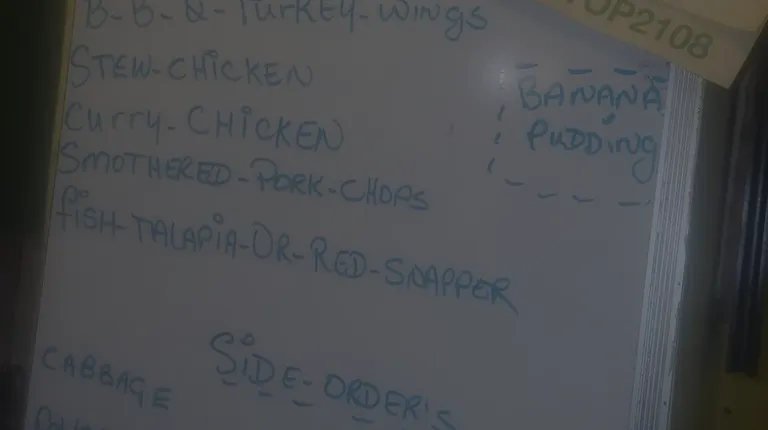 B-B-Q-TURKEY-WINGS
STEW-CHICKEN
Curry-CHICKEN
SMOTHERED-PORK-CHOPS
fiSH-TALAPIA-OR-RED-SNAPPER
BANANA
PUDDiNg
SiDE-ORDER'S
CABBAGE
OP2108